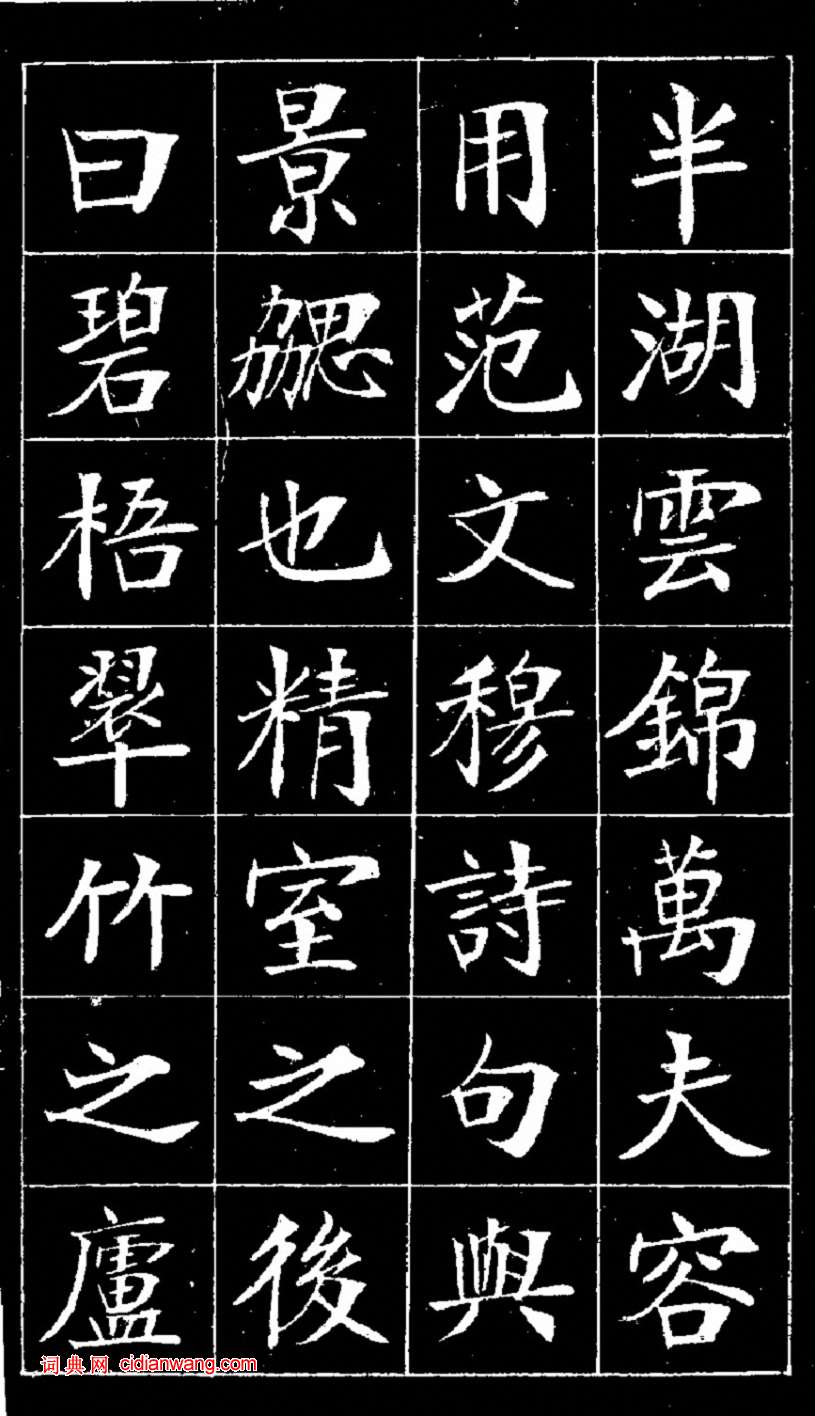 半湖雲錦萬夫容
用范文穆詩句與
景勰也精室之後
曰碧梧翠竹之廬
词典网 cidianwang.com